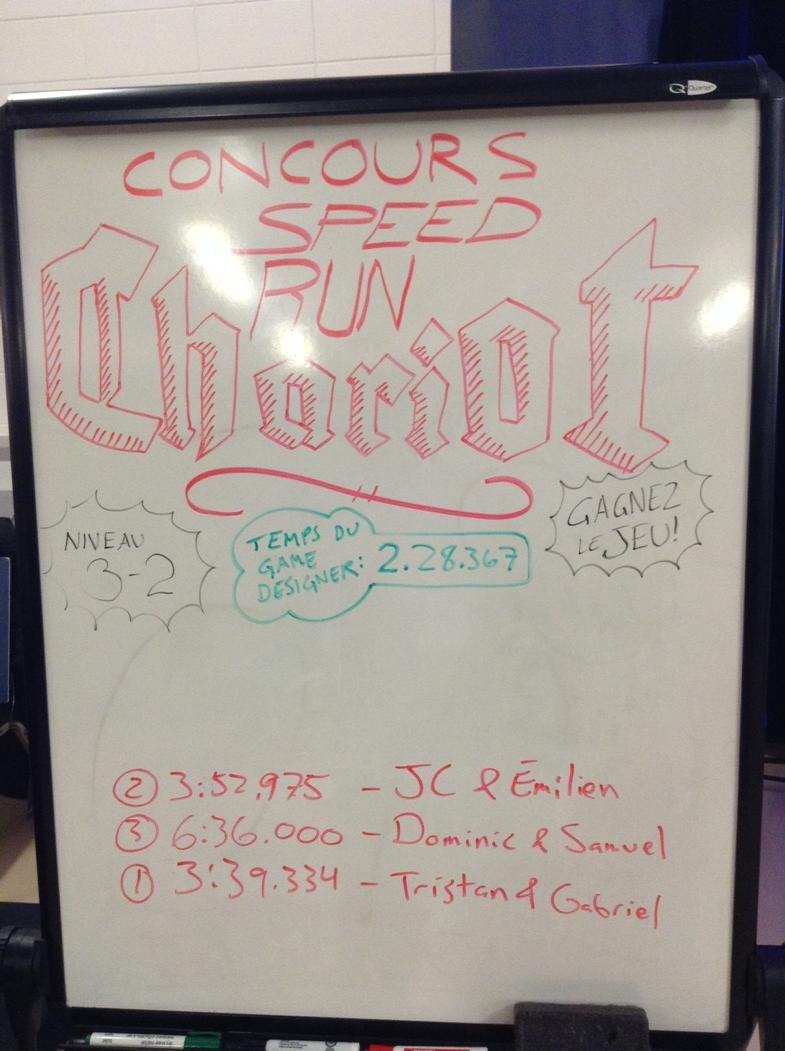 Quartet
CONCOURS
SPEED
RUN
Chariot
NIVEAU
3-2
TEMPS DU
GAME
DESIGNER:
2.28.367
GAGNEZ
LE JEU!
② 3:52.975 - JC & Émilien
③ 6:36.000 - Dominic & Samuel
① 3:39.334 - Tristan & Gabriel